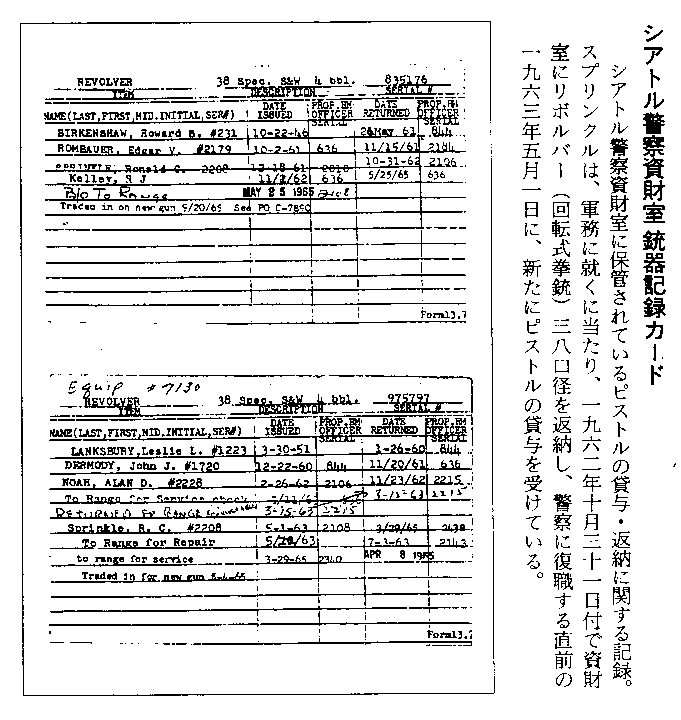 シアトル警察資財室 銃器記録カード
シアトル警察資財室に保管されているピストルの貸与・返納に関する記録。
スプリンクルは、軍務に就くに当たり、一九六二年十月三十一日付で資財
室にリボルバー（回転式拳銃）三八口径を返納し、警察に復職する直前の
一九六三年五月一日に、新たにピストルの貸与を受けている。
REVOLVER 38 Spec. S&W 4 bbl. 835176
ITEM DESCRIPTION SERIAL #
NAME(LAST,FIRST,MID.INITIAL,SER#) DATE ISSUED PROP.RM OFFICER SERIAL DATE RETURNED PROP.RM OFFICER SERIAL
BIRKENSHAW, Howard B. #231 10-22-46 26May 61 844
ROMBAUER, Edgar V. #2179 10-2-61 636 11/15/61 2184
SPRINKLE, Ronald C. 2208 12-18-61 10-31-62 2106
Kelley, R J 11/2/62 636 5/25/65 636
B/O To Range MAY 25 1965
Traded in on new gun 9/20/65 See PO C-7890
Form13.7
Equip #7130
REVOLVER 38 Spec. S&W 4 bbl. 975797
ITEM DESCRIPTION SERIAL #
NAME(LAST,FIRST,MID.INITIAL,SER#) DATE ISSUED PROP.RM OFFICER SERIAL DATE RETURNED PROP.RM OFFICER SERIAL
LANKSBURY,Leslie L. #1223 3-30-51 -26-60 844
DERMODY, John J. #1720 12-22-60 844 11/20/61 636
NOAH, ALAN D. #2228 2-26-62 2106 11/23/62 2215
To Range for Service check 3-15-63 2215
RETURNED FR RANGE 3-15-63 2215
Sprinkle, R. C. #2208 5-1-63 2108 3/29/65 2438
To Range for Repair 5/28/63 7-3-63 2143
to range for service 3-29-65 2340 APR 8 1965
Traded in for new gun
Form13.7